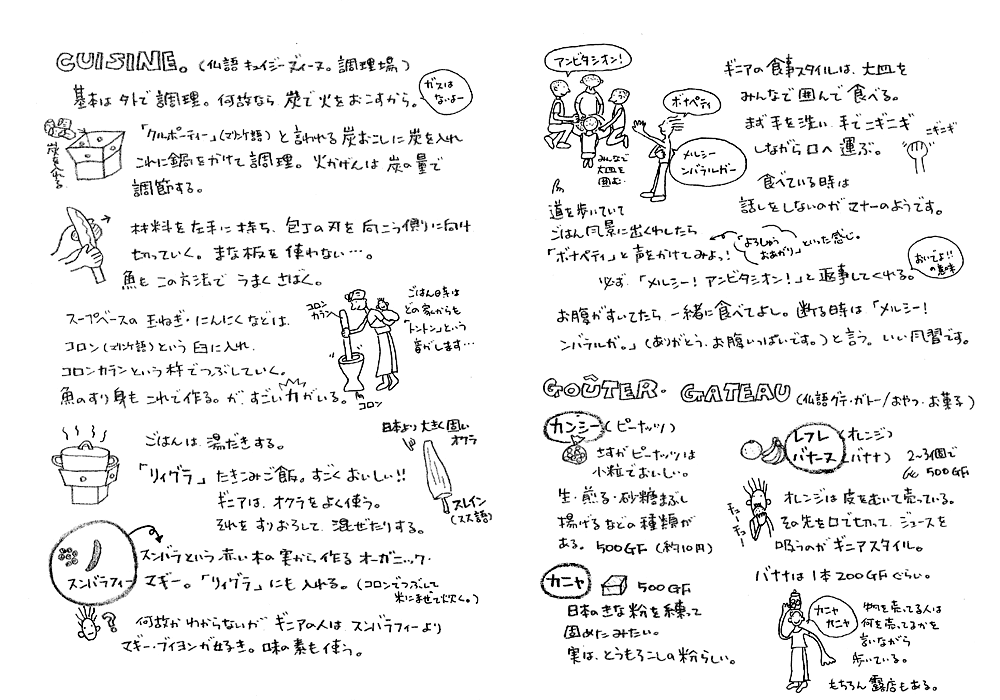 CUISINE。(仏語 キュイジーズィーヌ。調理場)
基本は外で調理。何故なら 炭で火をおこすから。
ガスは
ないよー
炭を入れる
「クルポーティー」(マリンケ語)と言われる炭おこしに炭を入れ
これに鍋をかけて調理。火かげんは 炭の量で
調節する。
材料を左手に持ち、包丁の刃を向こう側りに向け
切っていく。まな板を使わない…。
魚もこの方法で うまくさばく。
ごはん時は
どの家からも
「トントン」という
音がします…
コロン
カラン
スープベースの玉ねぎ・にんにくなどは、
コロン(マリンケ語)という臼に入れ、
コロンカランという杵でつぶしていく。
魚のすり身もこれで作る。が、すごい力がいる。
コロン
ごはんは、湯だきする。
「リィグラ」たきこみご飯。すごくおいしい!!
ギニアは、オクラをよく使う。
それをすりおろして、混ぜたりする。
日本より大きく固い
オクラ
スレイン
(スス語)
スンバラフィー
スンバラという赤い木の実から作るオーガニック・
マギー。「リィグラ」にも入れる。(コロンでつぶして
米にまぜて炊く。)
?
何故かわからないがギニアの人はスンバラフィーより
マギー・ブイヨンが好き。味の素も使う。
アンビタシオン!
ボナペティ
メルシー
ンバラルガー
みんなで
大皿を
囲む
ギニアの食事スタイルは、大皿を
みんなで囲んで食べる。
まず手を洗い、手でニギニギ
しながら口へ運ぶ。
ニギニギ
食べている時は
話しをしないのがマナーのようです。
道を歩いていて
ごはん風景に出くわしたら
「ボナペティ」と声をかけてみよっ!
「よろしゅう
おあがり」といった感じ。
必ず、「メルシー!アンビタシオン!」と返事してくれる。
おいでよ!!
の意味
お腹がすいてたら 一緒に食べてよし。断る時は「メルシー!
ンバラルガ。」(ありがとう、お腹いっぱいです。)と言う。いい風習です。
GOÛTER・GATEAU(仏語グテ・ガトー/おやつ・お菓子)
カンシー(ピーナッツ)
さすがピーナッツは
小粒でおいしい。
生・煎る・砂糖まぶし
揚げるなどの種類が
ある。500GF(約10円)
カニャ
500GF
日本のきな粉を練って
固めたみたい。
実は、とうもろこしの粉らしい。
レフレ(オレンジ)
バナーヌ(バナナ)
2~3個で
500GF
チューチュー
オレンジは皮をむいて売っている。
その先を口で切って、ジュースを
吸うのがギニアスタイル。
バナナは1本200GFぐらい。
カニャ
カニャ
物を売ってる人は
何を売ってるかを
言いながら
歩いている。
もちろん露店もある。